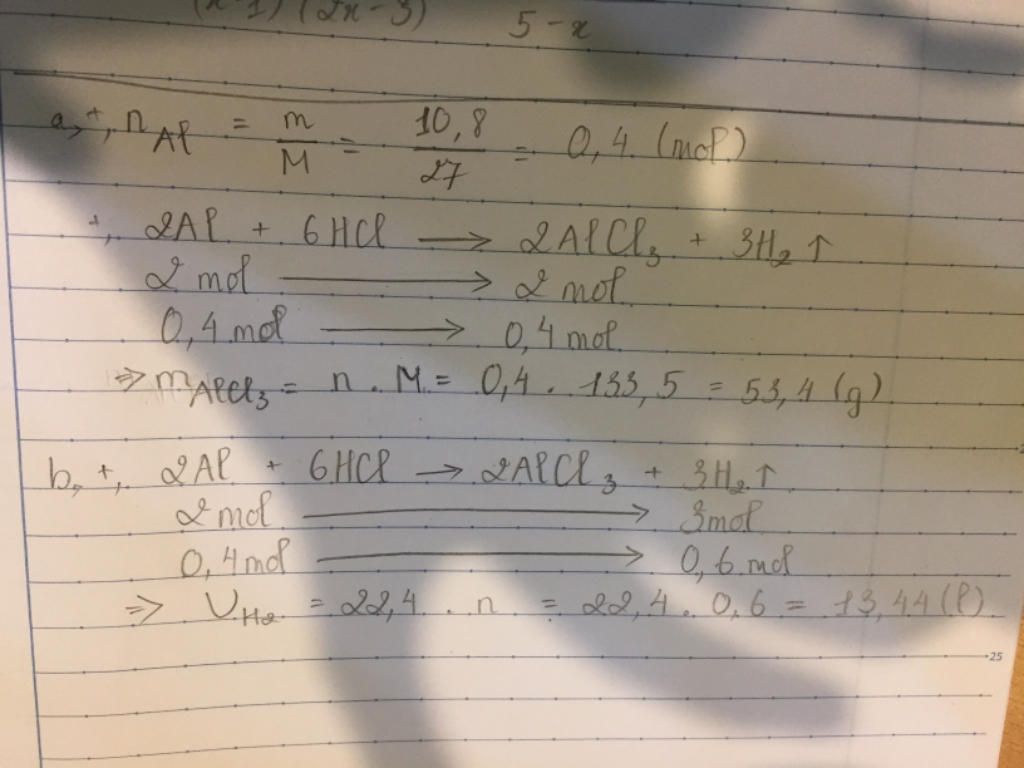 (x-1) (2x-3) 5-x
a, +, n Al = m/M = 10,8/27 = 0,4 (mol)
+, 2Al + 6HCl → 2AlCl₃ + 3H₂ ↑
2 mol → 2 mol
0,4 mol → 0,4 mol
=> m AlCl₃ = n . M = 0,4 . 133,5 = 53,4 (g)
b, +, 2Al + 6HCl → 2AlCl₃ + 3H₂ ↑
2 mol → 3mol
0,4mol → 0,6 mol
=> V H₂ = 22,4 . n = 22,4 . 0,6 = 13,44 (l)
25